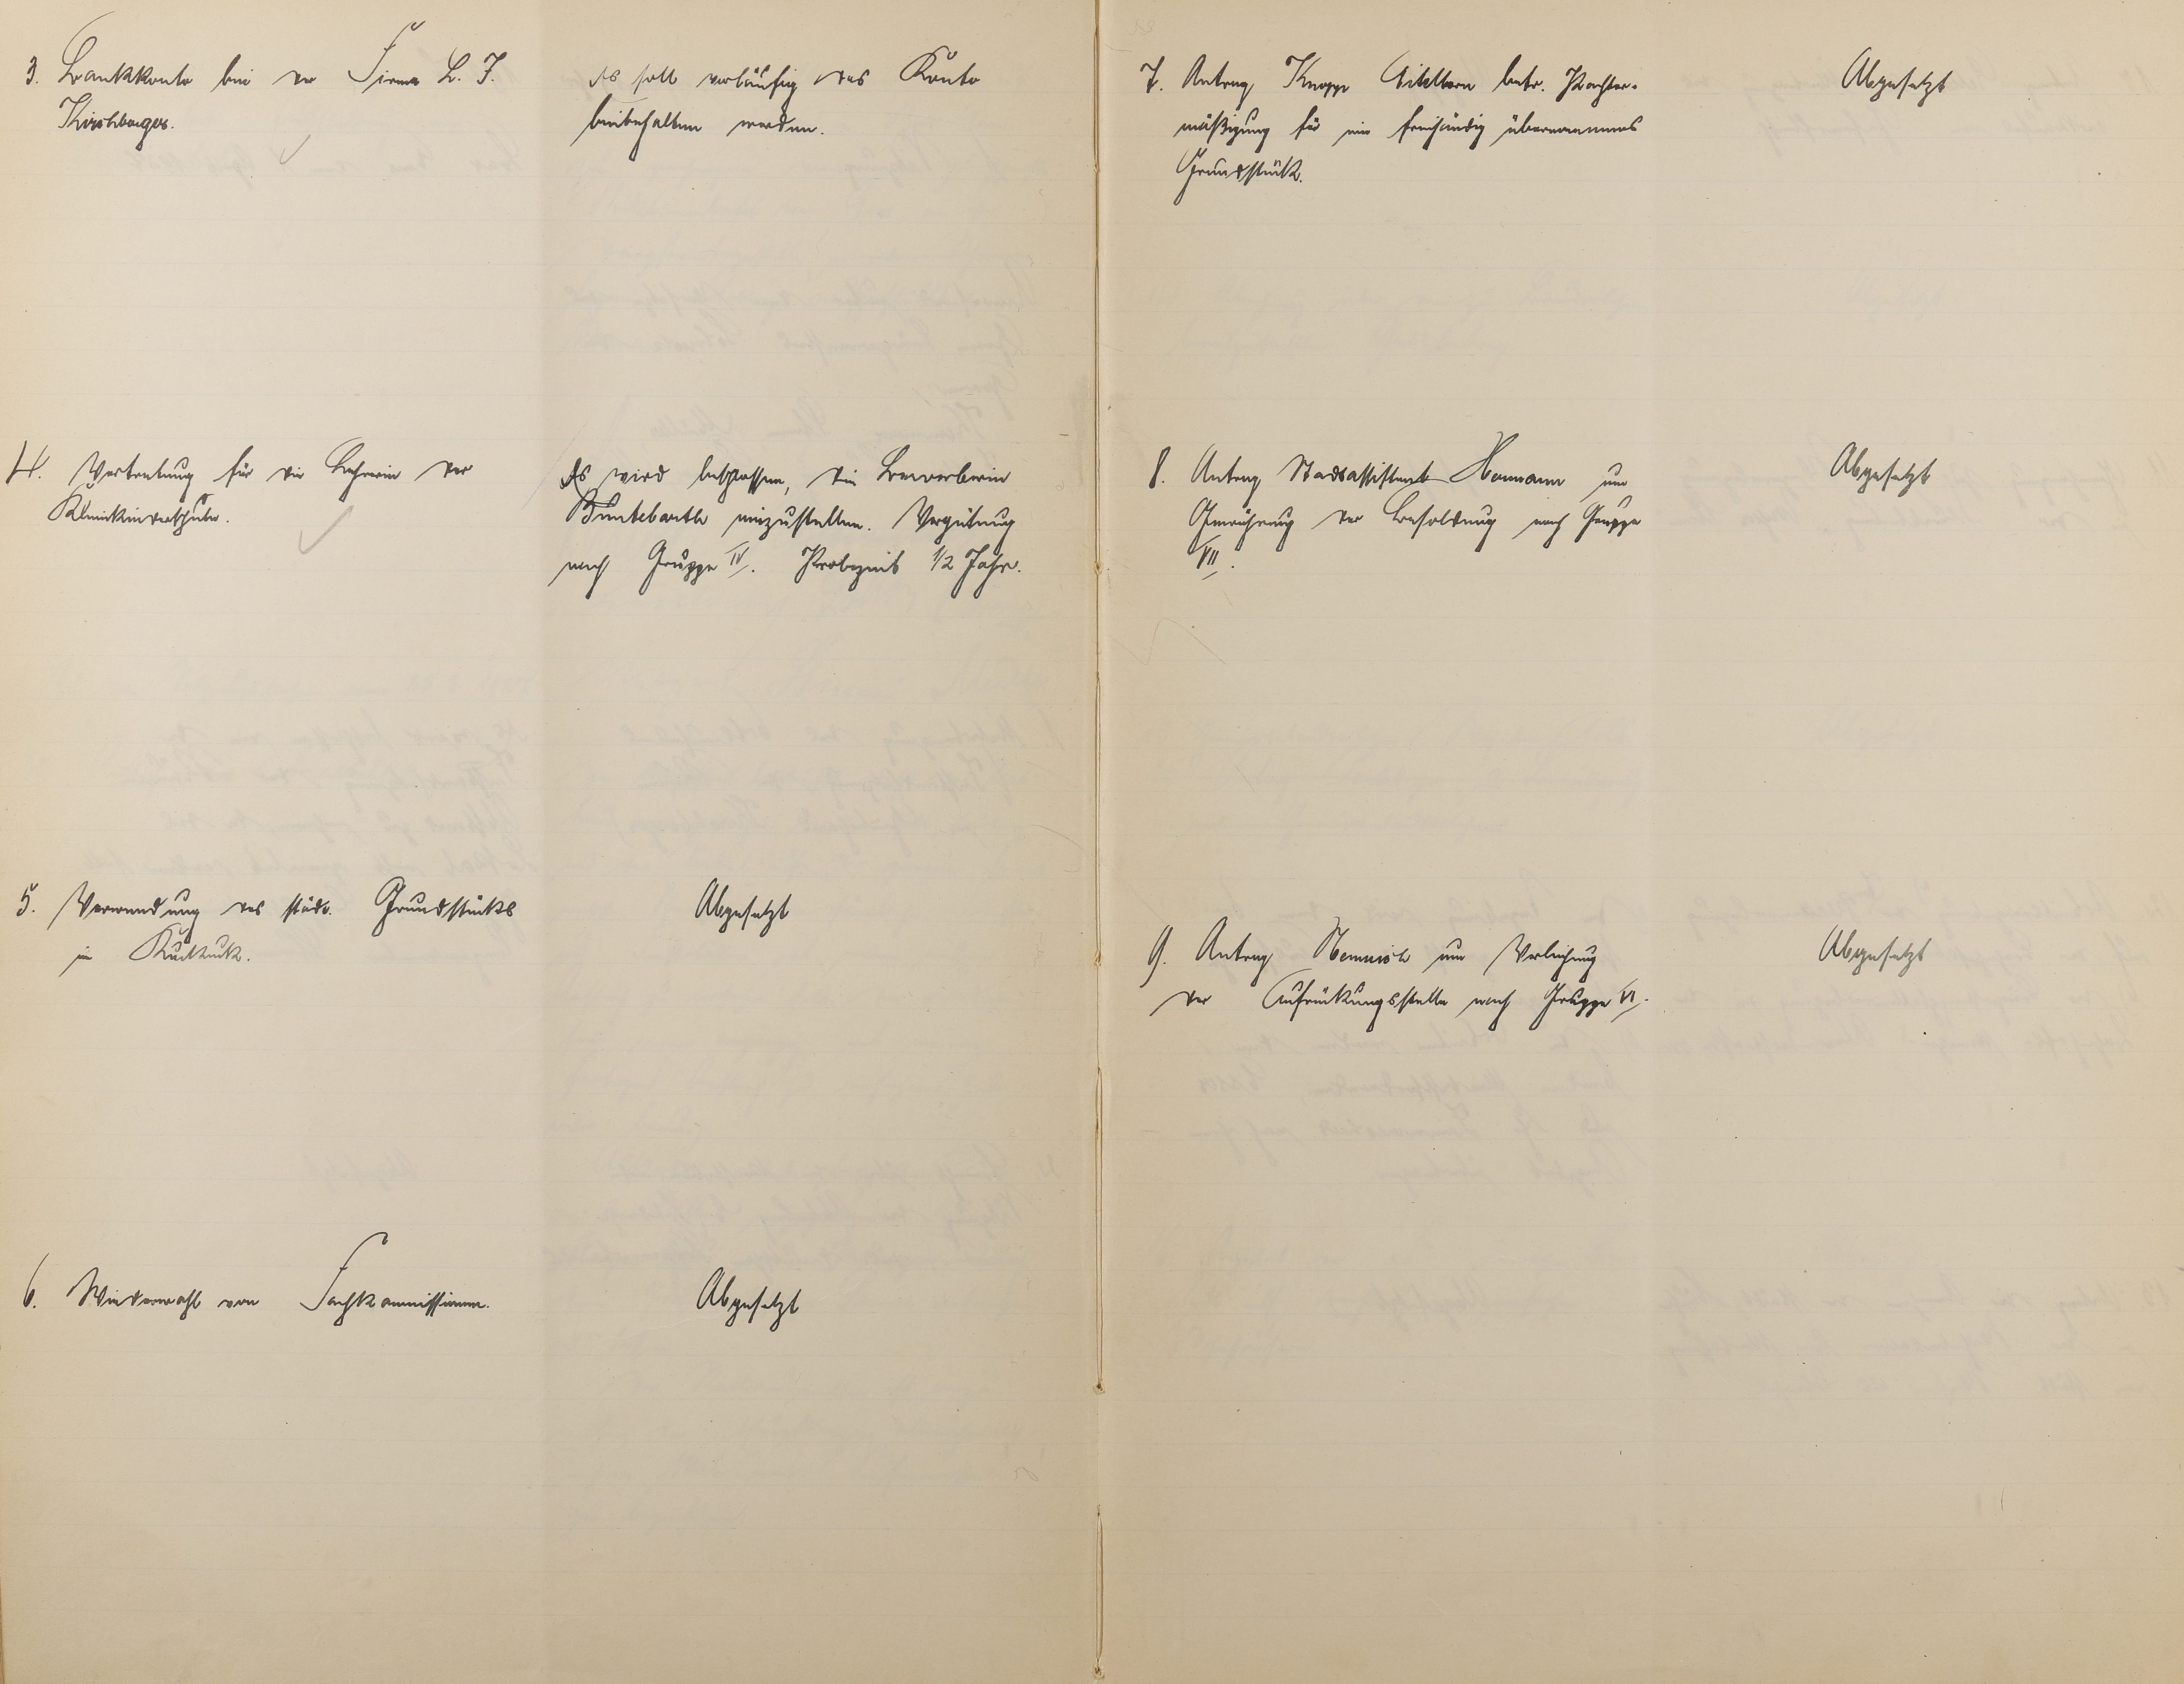 3. Bankkonto bei der Firma L. F.
Kirchberger.
Es soll vorläufig das Konto
beibehalten werden.
4. Vertretung für die Lehrerin der
Kleinkinderschule.
Es wird beschlossen, die Bewerberin
Buntebarth einzustellen. Vergütung
nach Gruppe IV. Probezeit 1/2 Jahr.
5. Verwendung des städt. Grundstücks
im Kuckuck.
Abgesetzt
6. Wiederwahl von Fachkommissionen.
Abgesetzt
7. Antrag Knopp Eitelborn betr. Pachter-
mäßigung für ein freihändig übernommenes
Grundstück.
Abgesetzt
8. Antrag Stadtassistent Hermann um
Gewährung der Besoldung nach Gruppe
VII.
Abgesetzt
9. Antrag um Verleihung
der Aufrückungsstelle nach Gruppe VI.
Abgesetzt